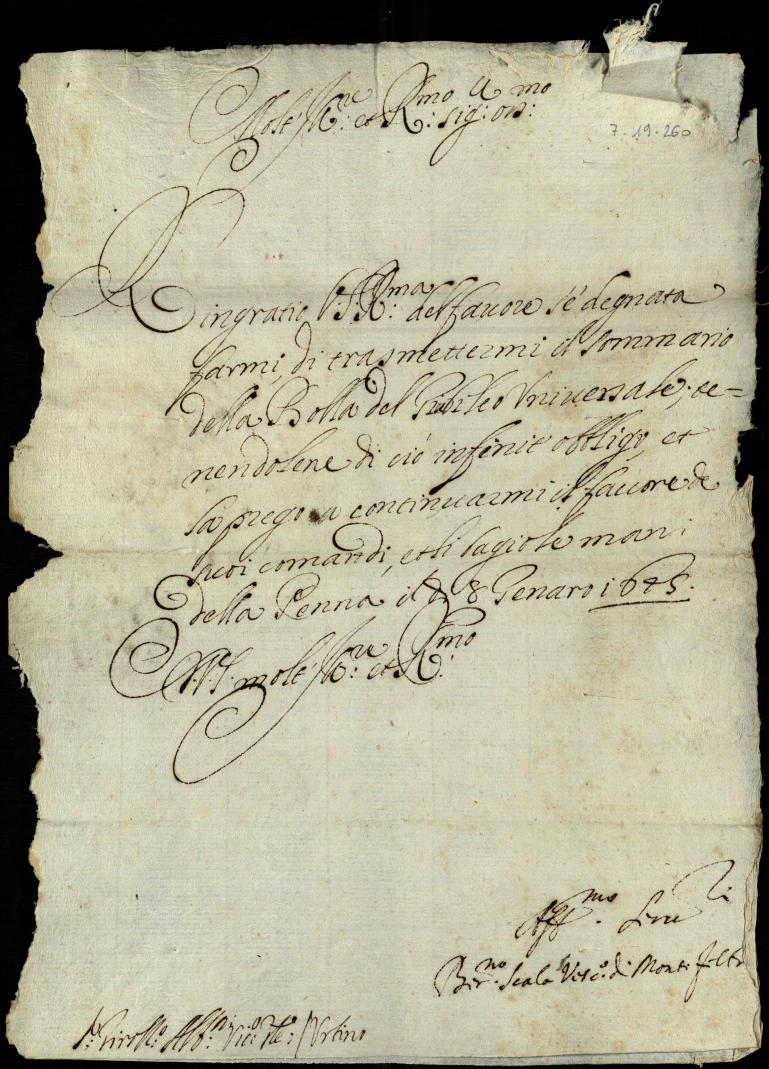 Molt' Ill:re et R:mo Sig: oss:mo
7-19-260
Ringratio V.S. R:ma del favore s'è degnata
farmi, di trasmettermi il sommario
della Bolla del Giubileo Universale; te=
nendolene di ciò infinit' obbligo, et
la prego a continuarmi il favore de
suoi comandi, et li bagio le mani
della Penna il dì 8 Genaro 1645.
D.V.S. molt' Ill:re et R:mo
Aff.mo Ser
Ber.no Scala Vesc.o di Monte Feltr
Vic: Urbino